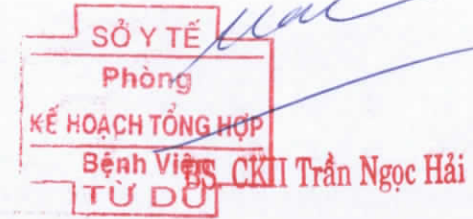 SỞ Y TẾ
Phòng
KẾ HOẠCH TỔNG HỢP
Bệnh Viện
BS. CKII Trần Ngọc Hải
TỪ DŨ